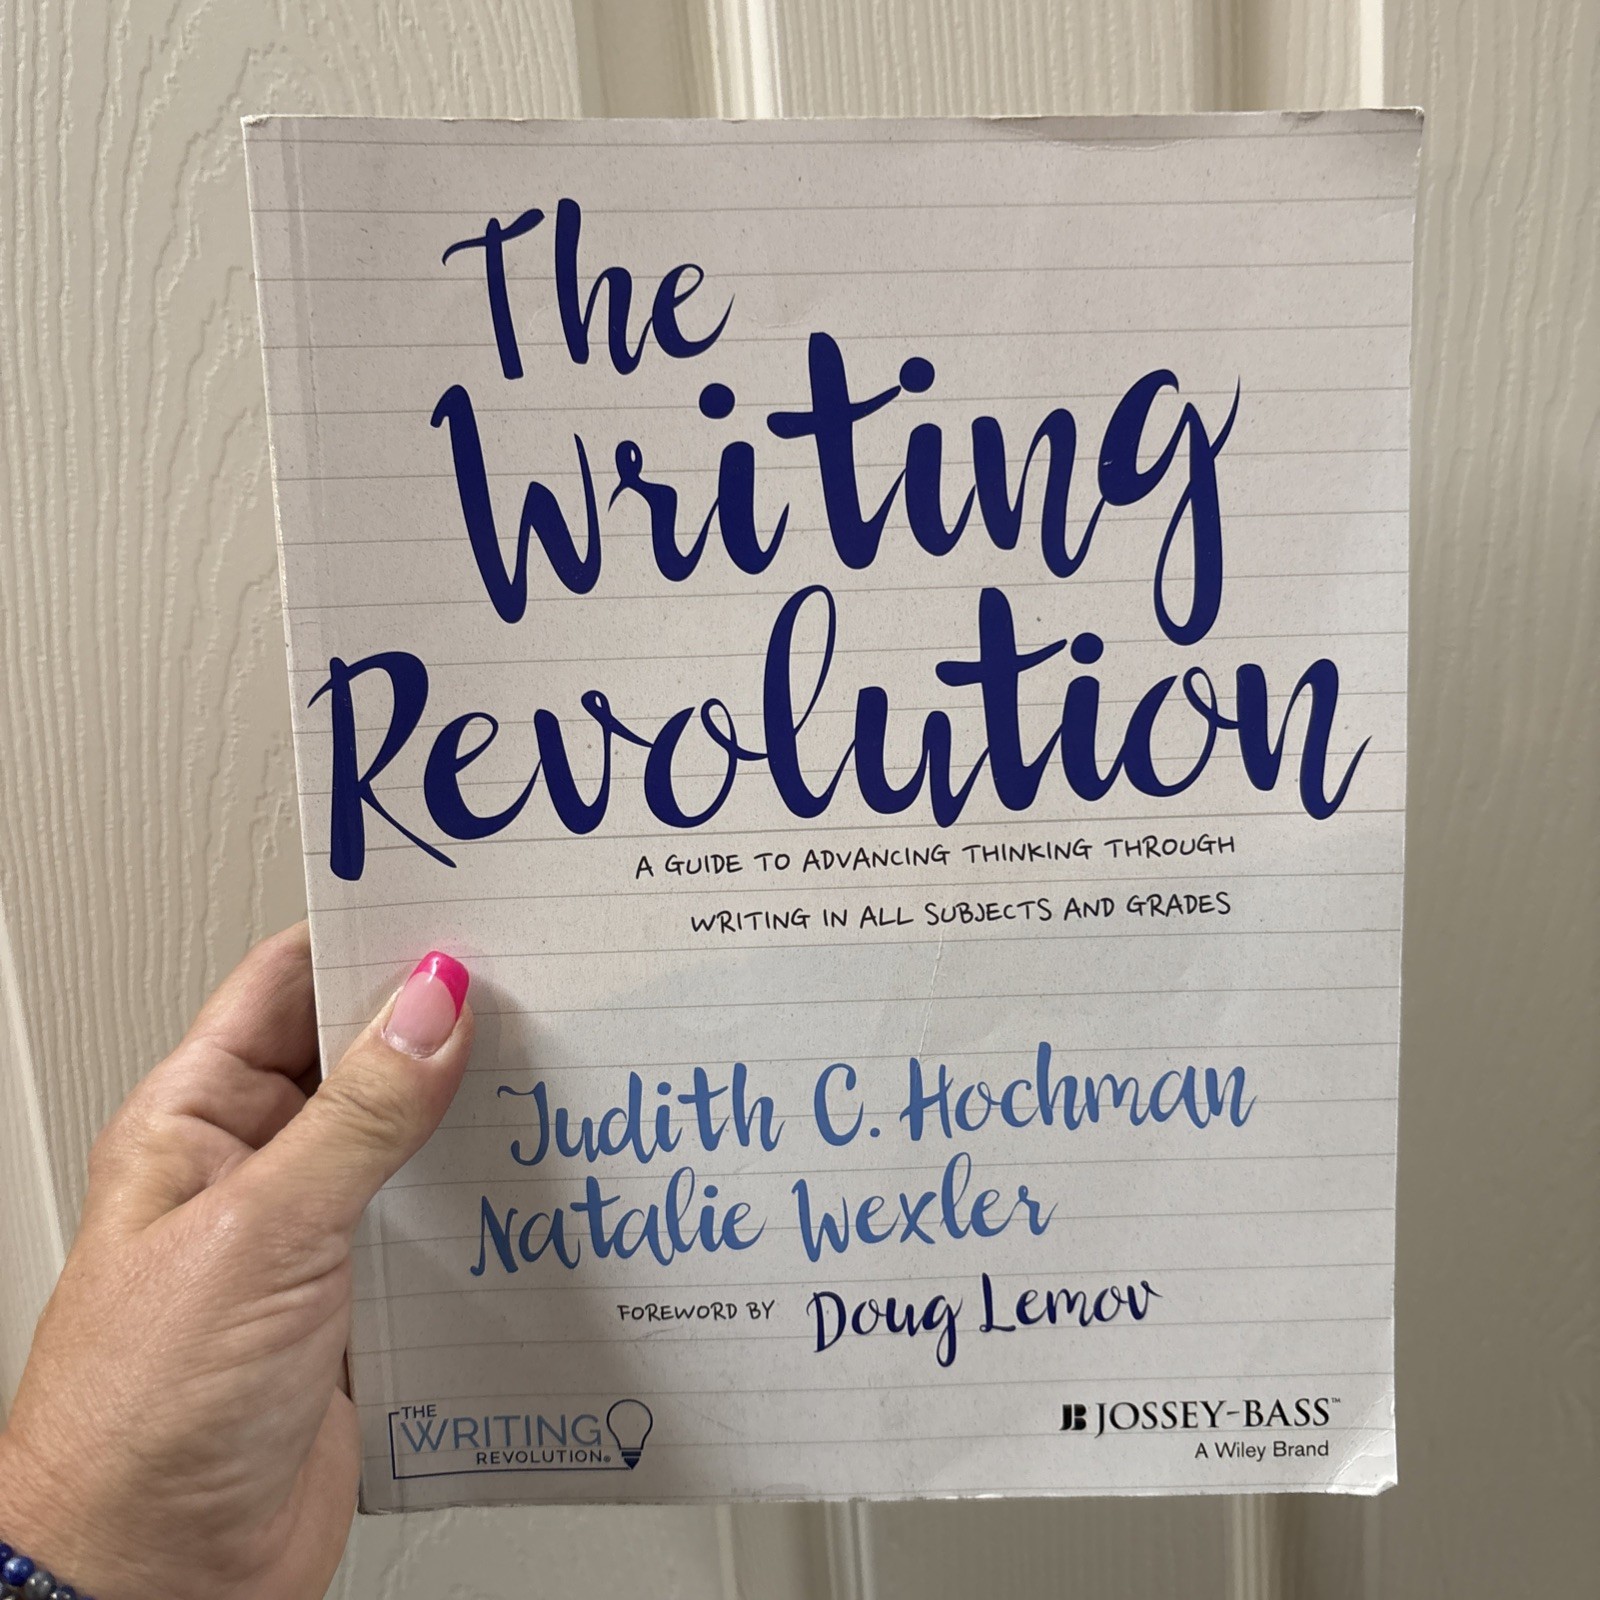 The
Writing
Revolution
A GUIDE TO ADVANCING THINKING THROUGH
WRITING IN ALL SUBJECTS AND GRADES
Judith C. Hochman
Natalie Wexler
FOREWORD BY Doug Lemov
THE
WRITING
REVOLUTION®
JB JOSSEY-BASS™
A Wiley Brand